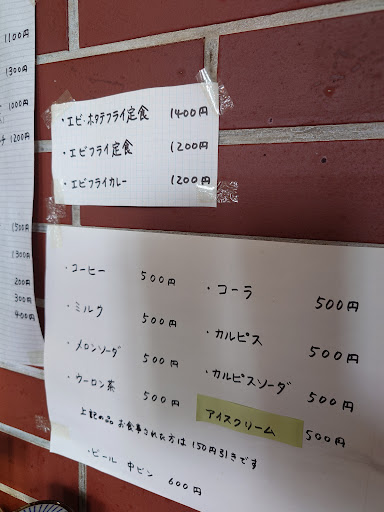 1100円
1300円
1000円
チ 1200円
1500円
1300円
200円
300円
400円
・エビ・ホタテフライ定食 1400円
・エビフライ定食 1200円
・エビフライカレー 1200円
・コーヒー 500円
・ミルク 500円
・メロンソーダ 500円
・ウーロン茶 500円
・コーラ 500円
・カルピス 500円
・カルピスソーダ 500円
アイスクリーム 500円
上記の品 お食事された方は 150円引きです
・ビール 中ビン 600円